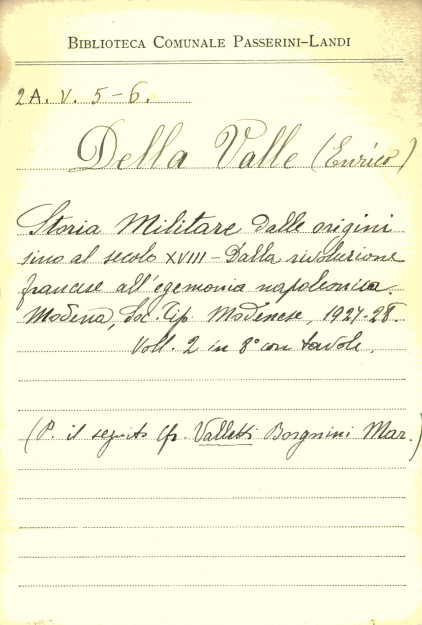 BIBLIOTECA COMUNALE PASSERINI-LANDI
2A. V. 5-6.
Della Valle (Enrico)
Storia Militare dalle origini
sino al secolo XVIII - Dalla rivoluzione
francese all'egemonia napoleonica.
Modena, Soc. Tip. Modenese, 1927-28.
Voll. 2 in 8° con tavole.
(P. il seguito cfr. Valletti Borgnini Mar.)